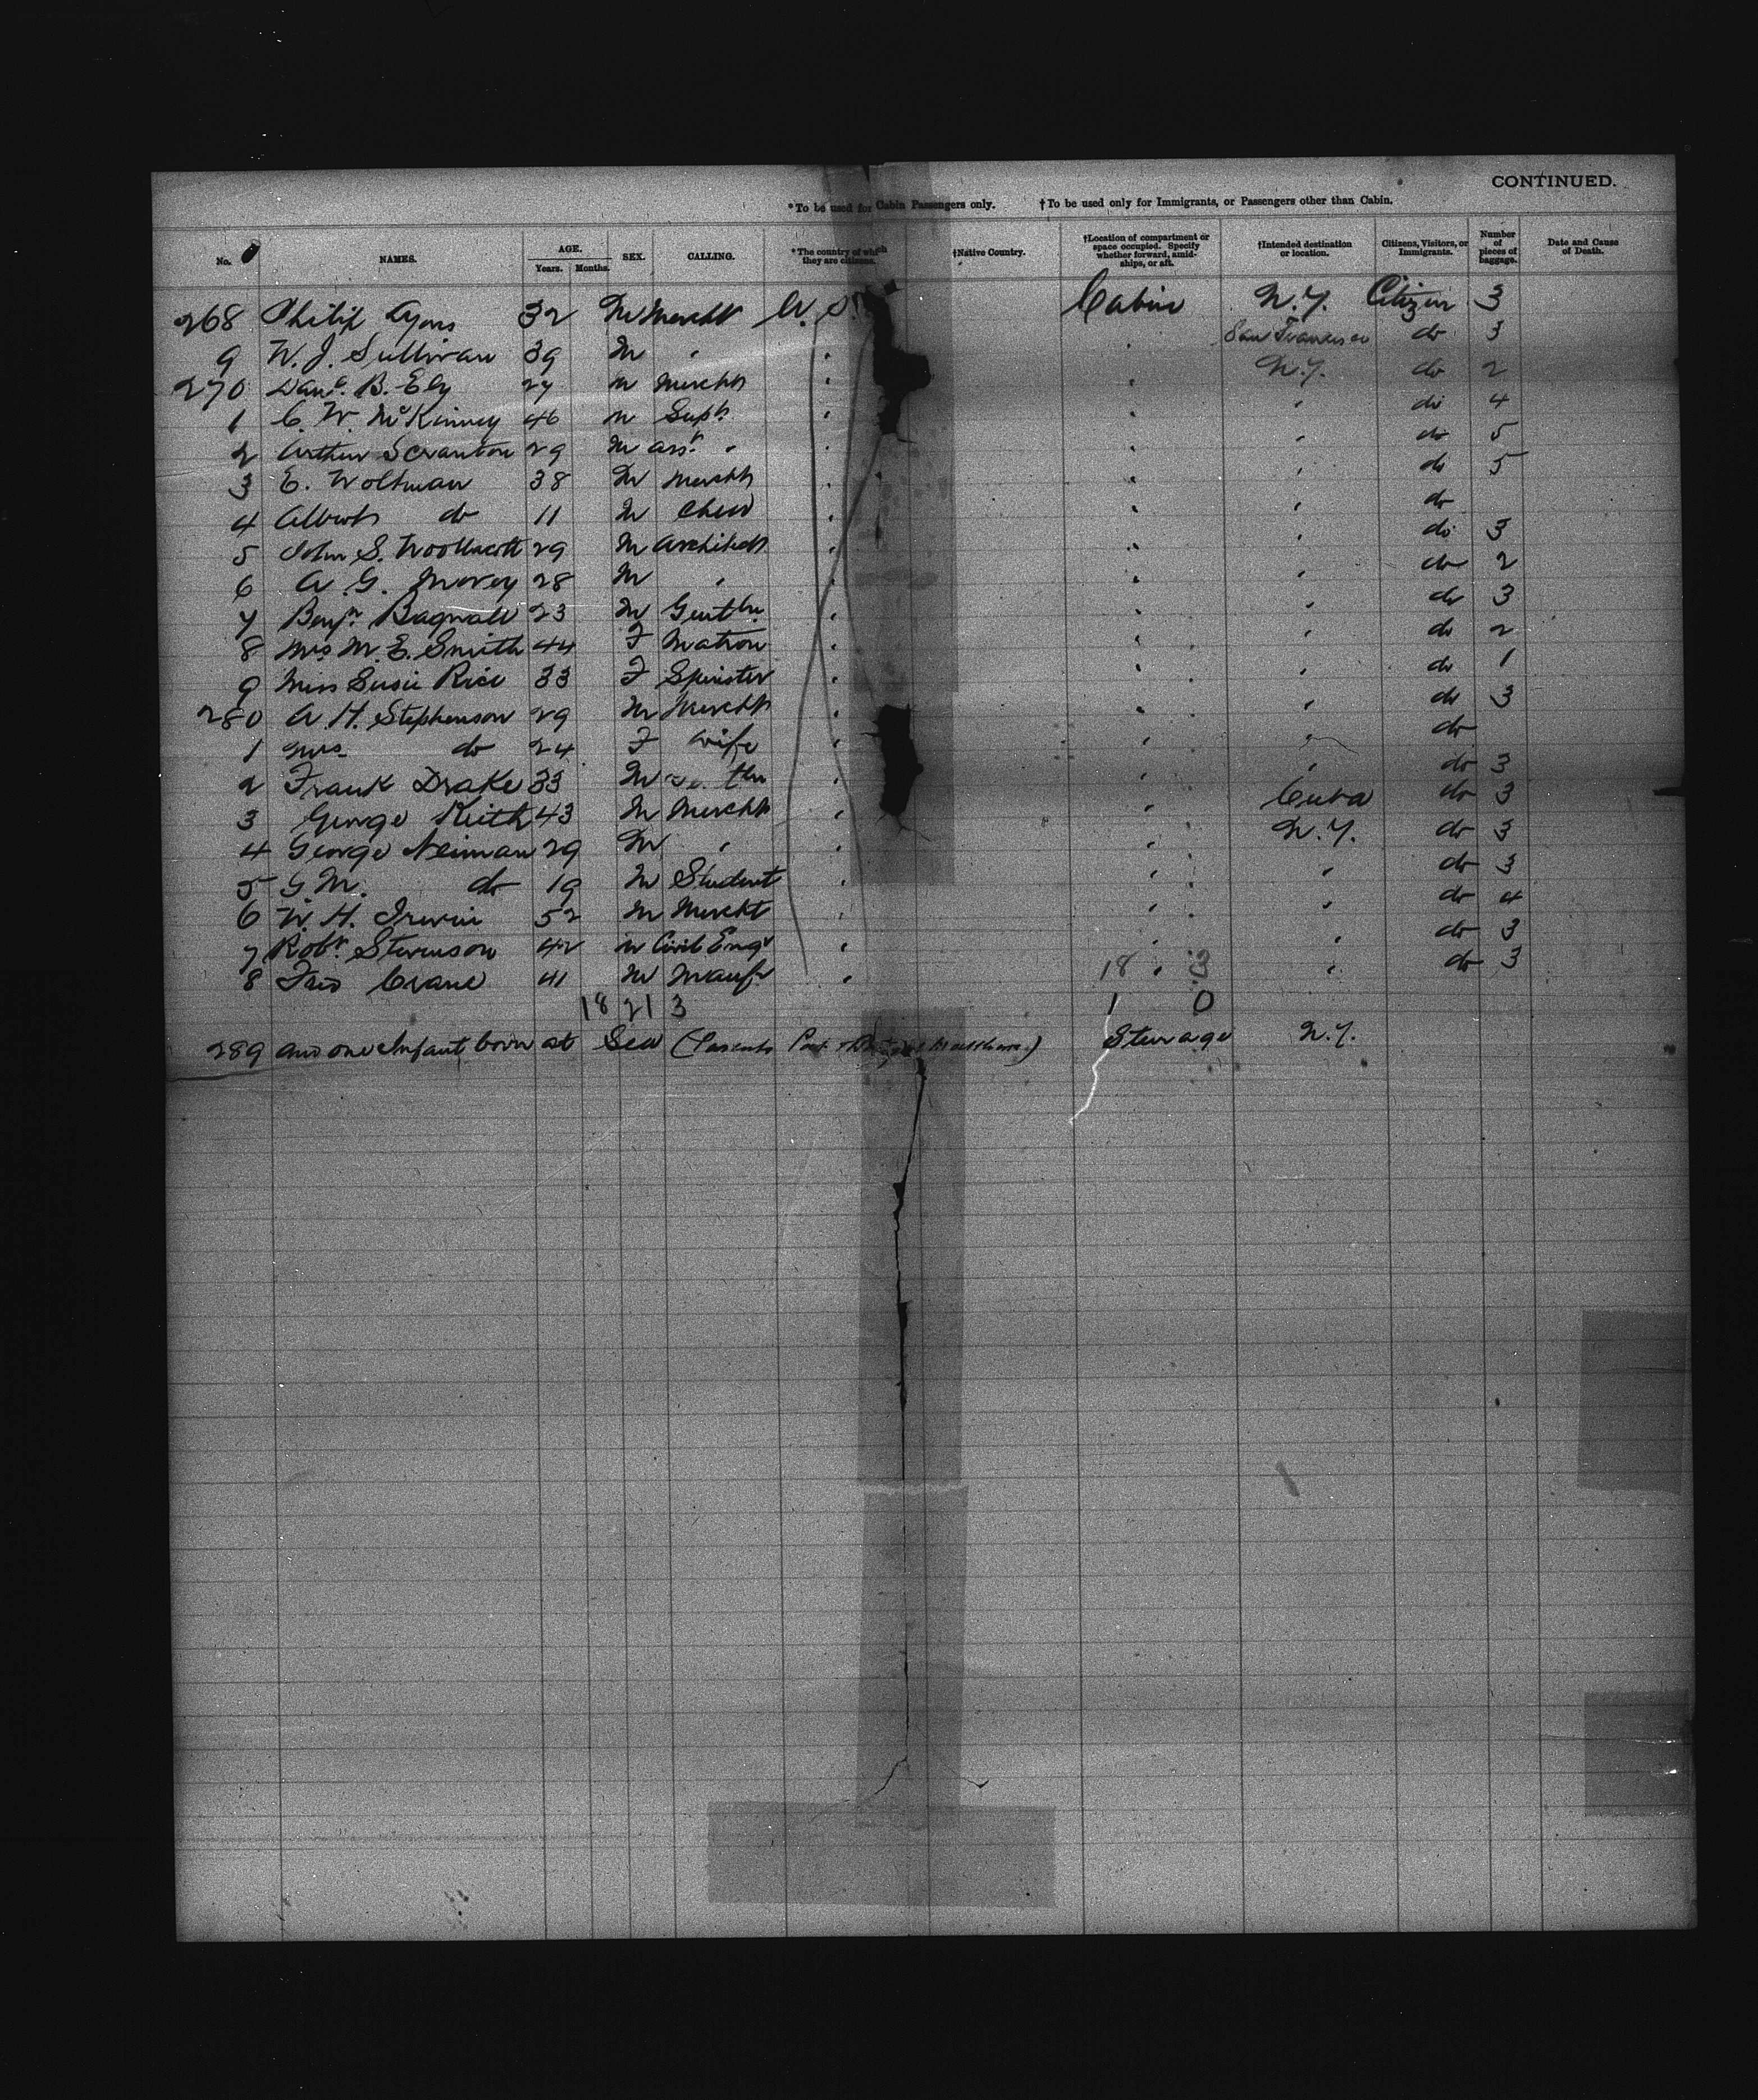 CONTINUED.
*To be used for Cabin Passengers only. †To be used only for Immigrants, or Passengers other than Cabin.
No. NAMES. AGE. Years. Months. SEX. CALLING. *The country of which they are citizens. †Native Country. †Location of compartment or space occupied. Specify whether forward, amidships, or aft. †Intended destination or location. Citizens, Visitors, or Immigrants. Number of pieces of baggage. Date and Cause of Death.
268 Philip Lyons 32 M Mercht U.S. Cabin N.Y. Citizen 3
9 W. J. Sullivan 39 M " " " San Francisco do 3
270 Danl. B. Ely 27 M Mercht " " N.Y. do 2
1 C. W. McKinney 46 M Supt. " " " do 4
2 Arthur Scranton 29 M Asst. " " " " do 5
3 E. Woltman 38 M Mercht " " " do 5
4 Albert do 11 M Child " " " do
5 John S. Woollacott 29 M Architect " " " do 3
6 A. G. Morey 28 M " " " " do 2
7 Benjn. Bagnall 23 M Gentln. " " " do 3
8 Mrs M. E. Smith 44 F Matron " " " do 2
9 Miss Susie Rice 33 F Spinster " " " do 1
280 A. H. Stephenson 29 M Mercht " " " do 3
1 Mrs. do 24 F Wife " " " do
2 Frank Drake 33 M " " " do 3
3 George Keith 43 M Mercht " " Cuba do 3
4 George Neiman 29 M " " " N.Y. do 3
5 G M. do 19 M Student " " " do 3
6 W. H. Irwin 52 M Mercht " " " do 4
7 Robt. Stevenson 42 M Civil Engr " " " do 3
8 Fred Crane 41 M Manfr " 18 " 3 " do 3
18 21 3 1 0
289 and one Infant born at Sea (Parents Steerage N.Y.